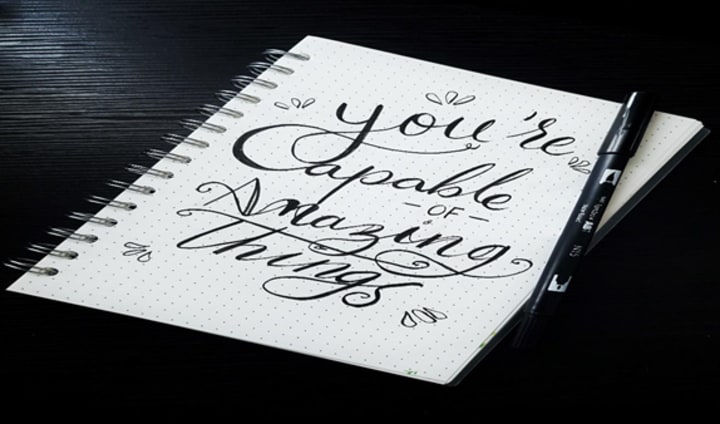 you're
Capable
- OF -
Amazing
things
N15